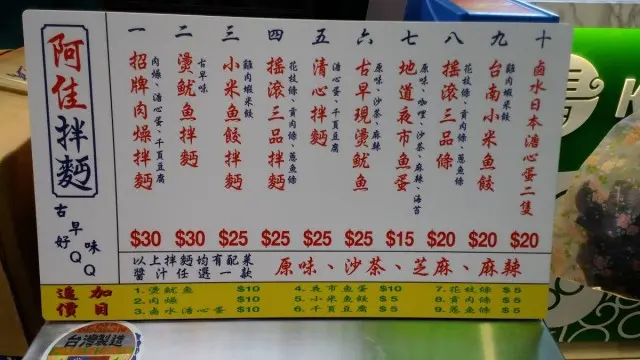 阿佳拌麵
古早味
好QQ
一 招牌肉燥拌麵 肉燥、溏心蛋、千頁豆腐 $30
二 燙魷魚拌麵 古早味 $30
三 小米魚餃拌麵 雞肉蝦米餃 $25
四 搖滾三品拌麵 花枝條、貢肉條、蔥魚條 $25
五 清心拌麵 溏心蛋、千頁豆腐 $25
六 古早現燙魷魚 原味、沙茶、麻辣 $25
七 地道夜市魚蛋 原味、咖哩、沙茶、麻辣、海苔 $15
八 搖滾三品條 花枝條、貢肉條、蔥魚條 $20
九 台南小米魚餃 雞肉蝦米餃 $20
十 鹵水日本溏心蛋二隻 $20
以上拌麵均有配菜
醬汁任選一款
原味、沙茶、芝麻、麻辣
加目
追價
1. 燙魷魚 $10
2. 肉燥 $10
3. 鹵水溏心蛋 $10
4. 夜市魚蛋 $10
5. 小米魚餃 $5
6. 千頁豆腐 $5
7. 花枝條 $5
8. 貢肉條 $5
9. 蔥魚條 $5
台灣製造
K